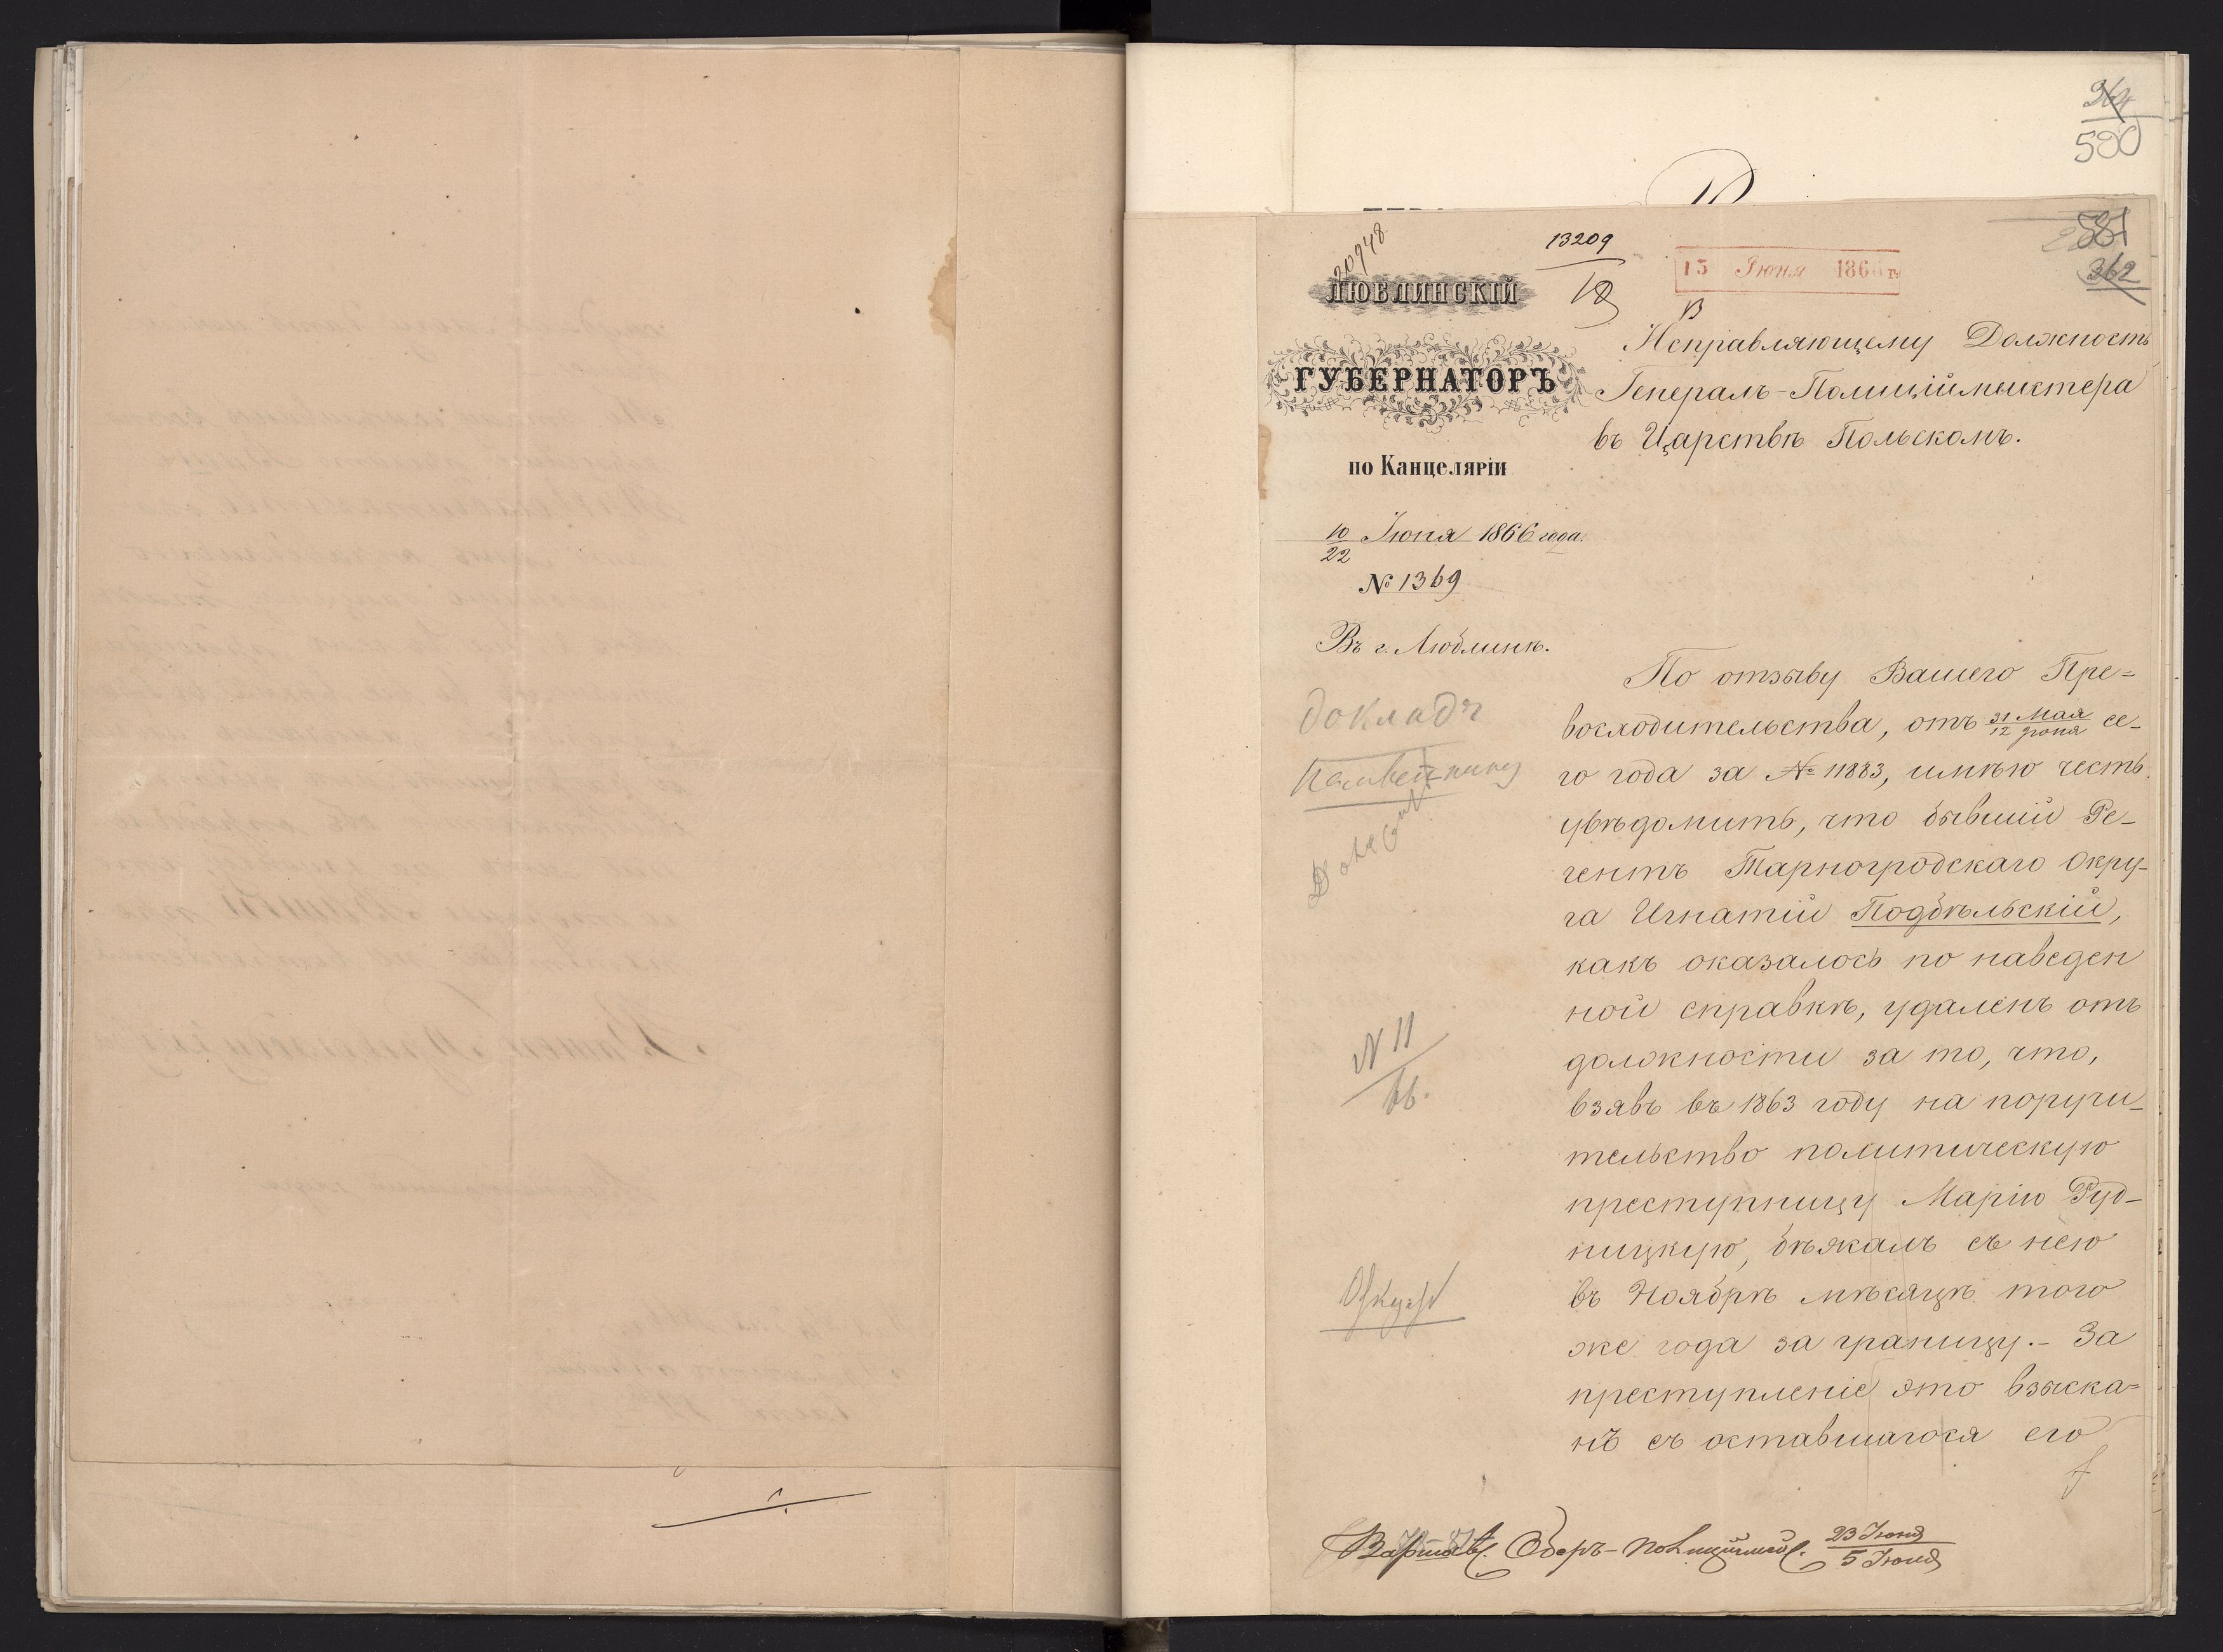 364
500
581
362
20948
13209
18
15 Іюня 1866 г.
ЛЮБЛИНСКІЙ
ГУБЕРНАТОРЪ
по Канцеляріи
10/22 Іюня 1866 года.
№ 1369
Въ г. Люблинѣ.
Исправляющему Должность
Генералъ-Полиціймейстера
въ Царствѣ Польскомъ.
По отзыву Вашего Пре=
восходительства, отъ 31 Мая/12 Іюня се-
го года за № 11883, имѣю честь
увѣдомить, что бывшій Ре-
гентъ Тарногродскаго Окру-
га Игнатій Подбѣльскій,
какъ оказалось по наведен
ной справкѣ, удаленъ отъ
должности за то, что,
взявъ въ 1863 году на поручи-
тельство политическую
преступницу Марію Руд-
ницкую, бѣжалъ съ нею
въ Ноябрѣ мѣсяцѣ того
же года за границу.- За
преступленіе это взыска=
нъ съ оставшагося его
докладъ
N 11/66.
Варшав. Оберъ-полицiймей. 23 Іюня/5 Іюля